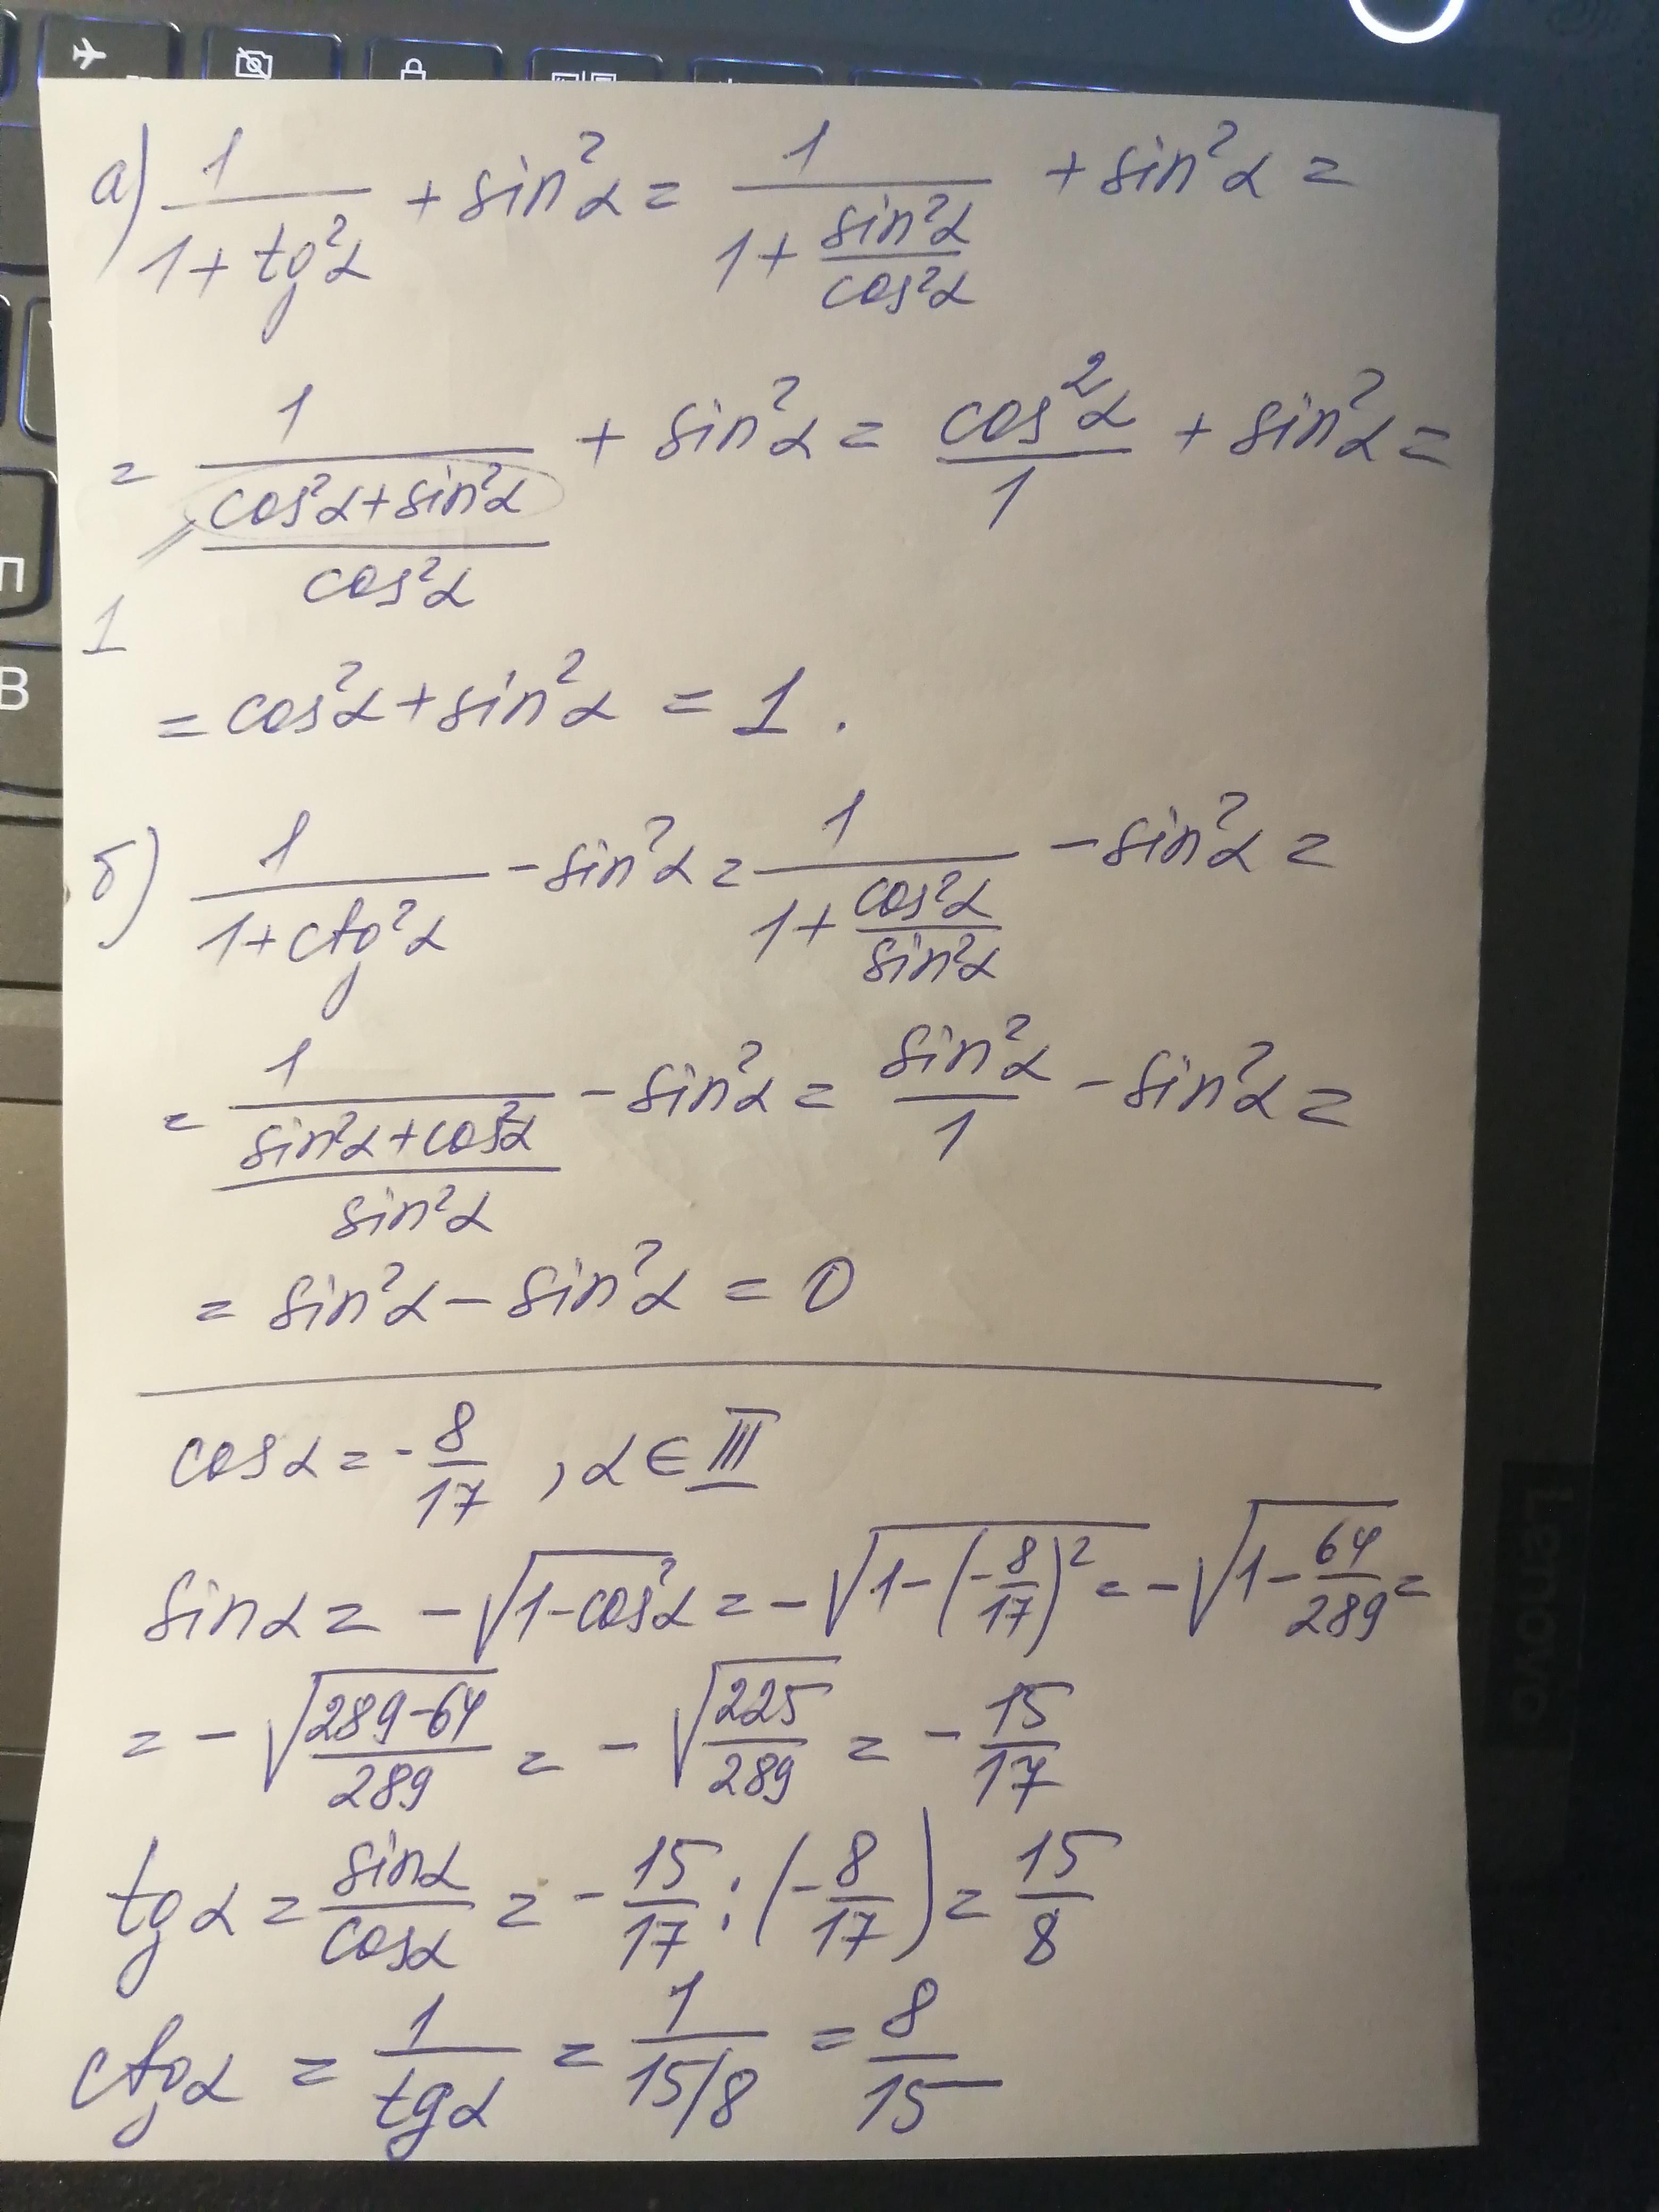 а) 1/(1+tg²α) + sin²α = 1/(1+sin²α/cos²α) + sin²α =
= 1/((cos²α+sin²α)/cos²α) + sin²α = cos²α/1 + sin²α =
1
= cos²α + sin²α = 1.
б) 1/(1+ctg²α) - sin²α = 1/(1+cos²α/sin²α) - sin²α =
= 1/((sin²α+cos²α)/sin²α) - sin²α = sin²α/1 - sin²α =
= sin²α - sin²α = 0
cosα = -8/17, α ∈ III
sinα = -√(1-cos²α) = -√(1-(-8/17)²) = -√(1-64/289) =
= -√((289-64)/289) = -√(225/289) = -15/17
tgα = sinα/cosα = -15/17 : (-8/17) = 15/8
ctgα = 1/tgα = 1/(15/8) = 8/15
Lenovo
П
В